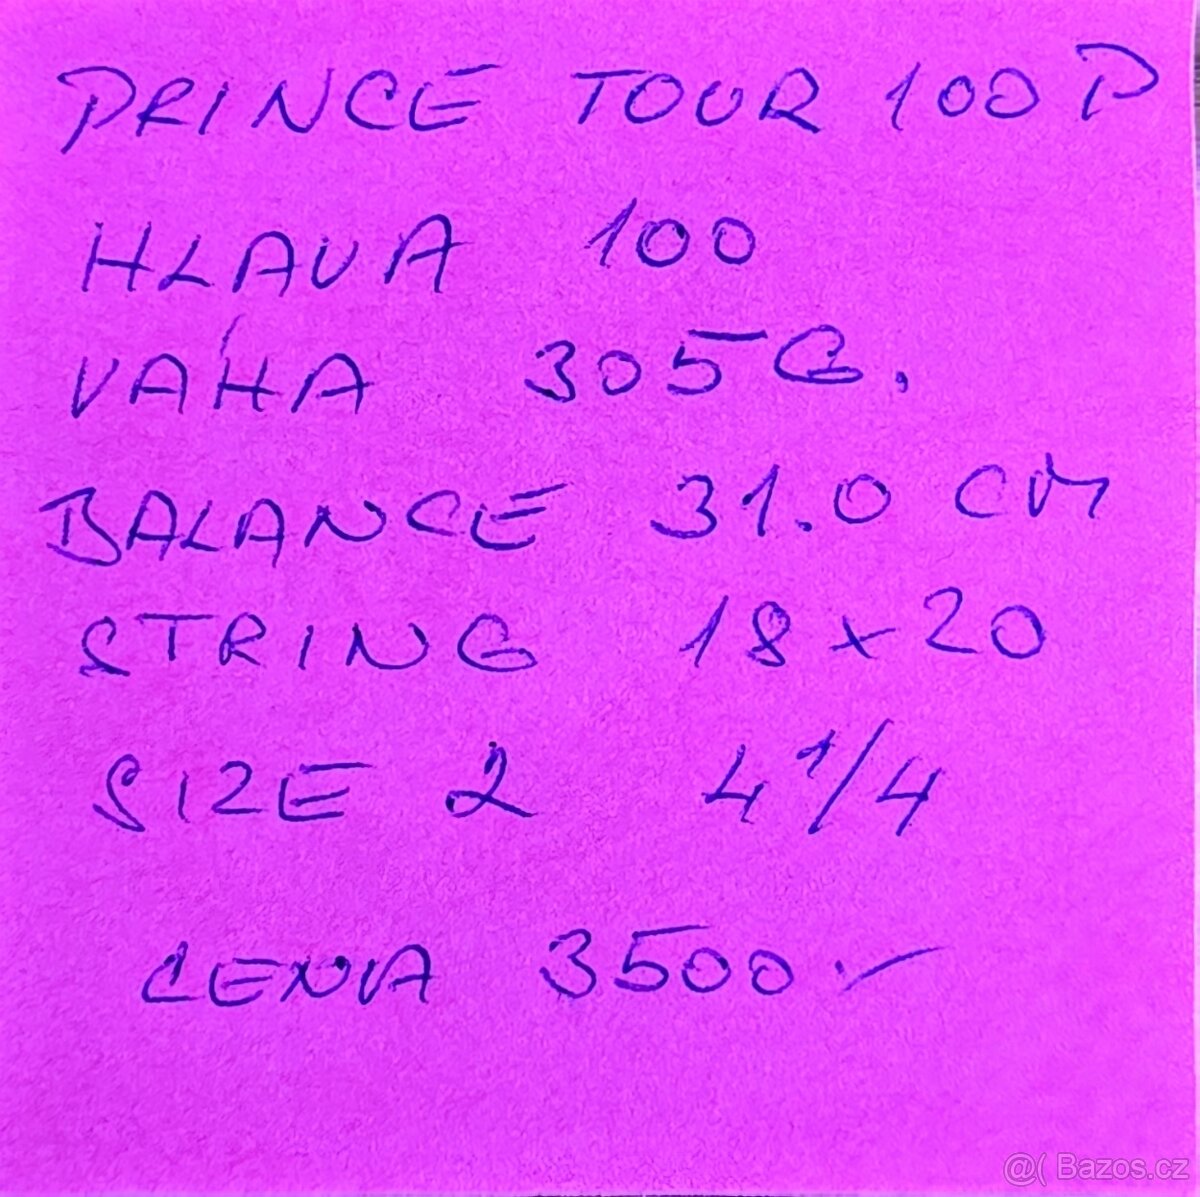 PRINCE TOUR 100 P
HLAVA 100
VÁHA 305 G.
BALANCE 31.0 CM
STRING 18 x 20
SIZE 2 4 1/4
CENA 3500.-
@( Bazos.cz